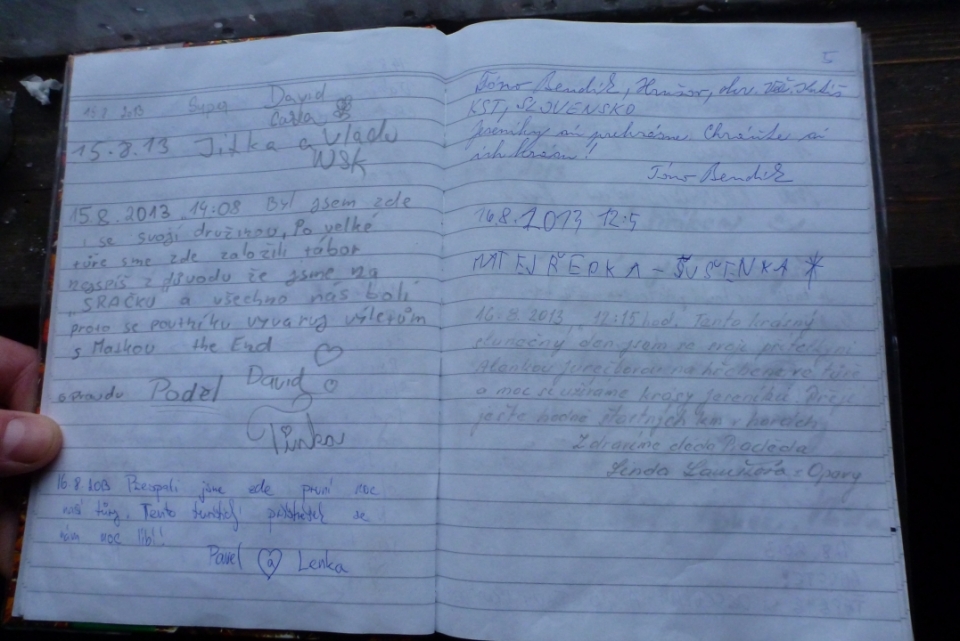 15.8.2013 David
Carla
15.8.13 Jitka a Vláďa
WSK
15.8.2013 14:08 Byl jsem zde
i se svojí družinou, Po velké
túře sme zde založili tábor
nejspíš z důvodu že jsme na
„SRAČKU a všechno nás bolí
proto se poutníku vyvaruj výletům
s Maskou the End
opravdu Poděl David
Tinka
16.8.2013 Přespali jsme zde první noc
naší túry. Tento turistický přístřešek se
nám moc líbí!
Pavel a Lenka
5
Tóno Bendík,
KST, SLOVENSKO
Jeseníky sú prekrásne. Chráňte si
ich krásu!
Tóno Bendík
16.8.2013 12:5
MATEJ ŘEPKA - ŠUŠTENKA
16.8.2013 12:15 hod. Tento krásný
slunečný den jsem se svojí přítelkyní
na hřebenové túře
a moc si užíváme krásy Jeseníků. Přeji
ještě hodně šťastných km v horách
Zdravíme
Lenda z Opavy